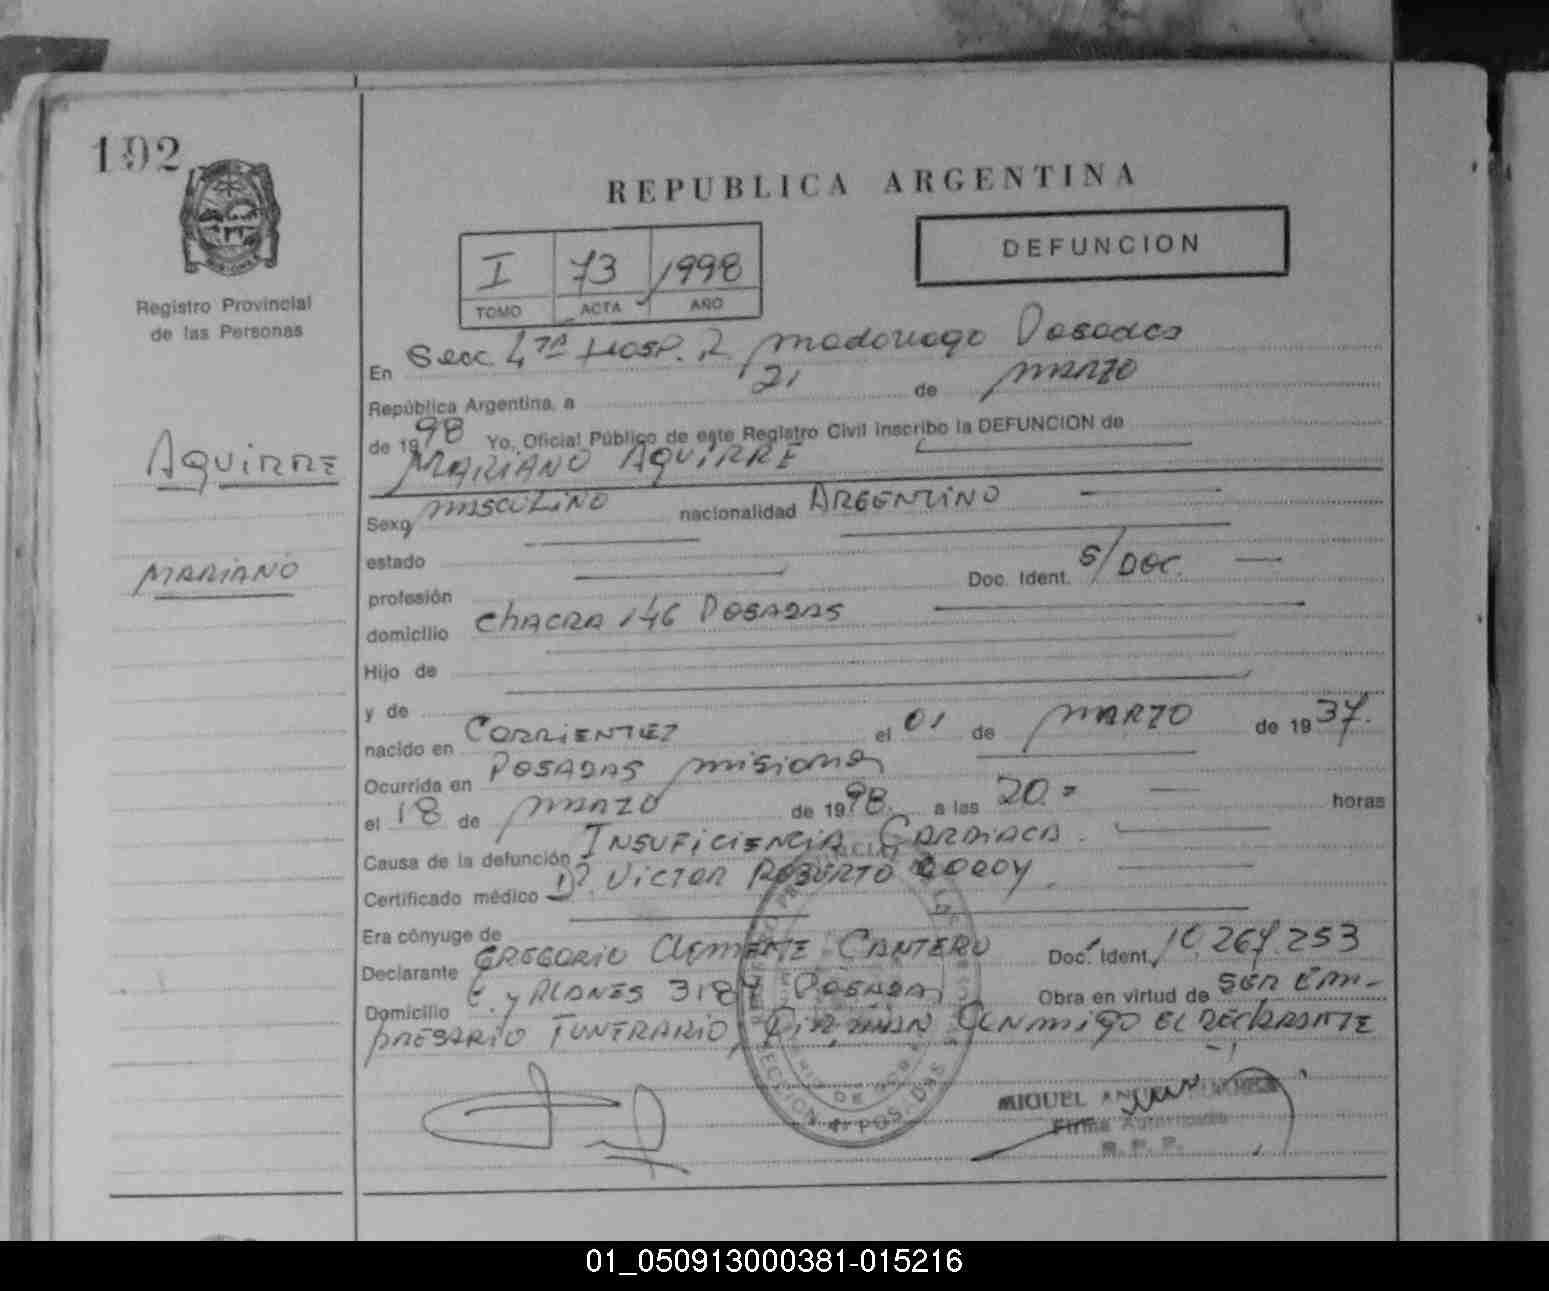 192
Registro Provincial
de las Personas
AGUIRRE
MARIANO
REPUBLICA ARGENTINA
I 73 1998
TOMO ACTA AÑO
DEFUNCION
En Secc. 4ta HOSP. R. Madariaga Posadas
República Argentina, a 21 de MARZO
de 1998 Yo, Oficial Público de este Registro Civil inscribo la DEFUNCION de
MARIANO AGUIRRE
Sexo MASCULINO nacionalidad ARGENTINO
estado
profesión Doc. Ident. S/DOC.
domicilio CHACRA 146 POSADAS
Hijo de
y de
nacido en CORRIENTES el 01 de MARZO de 1937.
Ocurrida en POSADAS Misiones
el 18 de MARZO de 1998. a las 20.= horas
Causa de la defunción INSUFICIENCIA CARDIACA.
Certificado médico Dr. VICTOR ROBERTO GODOY.
Era cónyuge de
Declarante GREGORIO CLEMENTE CANTERO Doc. Ident. 10.267.253
Domicilio C. y 3187 POSADAS Obra en virtud de SER EM-
PRESARIO FUNERARIO, FIRMAN CONMIGO EL DECLARANTE
MIGUEL
Firma Autorizada
R. P. P.
SECCION 4 POSADAS
01_050913000381-015216